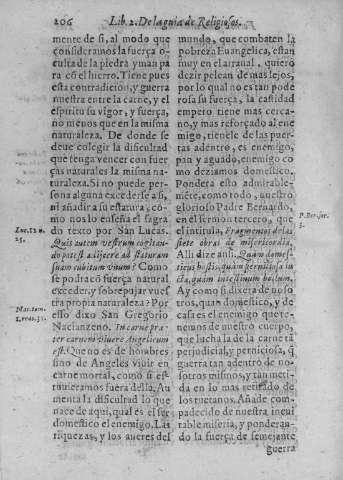 206 Lib. 2. De la guia de Religiosos.
mente de si, al modo que
consideramos la fuerça o-
culta de la piedra yman pa
ra cõ el hierro. Tiene pues
esta contradicion, y guerra
nuestra entre la carne, y el
espiritu su vigor, y fuerça,
no menos que en la misma
naturaleza. De donde se
deue colegir la dificultad
que tenga vencer con fuer
ças naturales la misma na-
turaleza. Si no puede per-
sona alguna excederse a si,
ni añadir a su estatura, có-
mo nos lo enseña el sagra
do texto por San Lucas.
Quis autem vestrum cogitan-
do potest adijcere ad staturam
suam cubitum vnum? Como
se podra cõ fuerça natural
exceder, y sobrepujar vues
tra propria naturaleza? Por
esso dixo San Gregorio
Nacianzeno. In carne præ-
ter carnem viuere Angelicum
est. Que no es de hombres
sino de Angeles viuir en
carne mortal, como si es-
tuuieramos fuera della. Au
menta la dificultad lo que
nace de aqui, qual es el ser
domestico el enemigo. Las
riquezas, y los aueres del
Luc. 12 n.
25.
mundo, que combaten la
pobreza Euangelica, estan
muy en el arraual, quiero
dezir pelean de mas lejos,
por lo qual no es tan pode
rosa su fuerça, la castidad
empero tiene mas cerca-
no, y mas reforçado al ene
migo, tienele de las puer-
tas adentro, es enemigo,
pan y aguado, enemigo co
mo deziamos domestico.
Pondera esto admirable-
mẽte, como todo, nuestro
glorioso Padre Bernardo,
en el sermon tercero, que
el intitula, Fragmentos de las
siete obras de misericordia.
Alli dize ansi. Quam domes-
ticus hostis, quàm perniciosa lu
cta, quàm intestinum bellum.
Ay como si dixera de noso
tros, quan domestico, y de
casa es el enemigo que te-
nemos de nuestro cuerpo,
que lucha la de la carne tã
perjudicial, y perniciosa, q̃
guerra tan adentro de no-
sotros mismos, y tan meti-
da en lo mas retirado de
los tuetanos. Añade com-
padecido de nuestra ineui
table miseria, y ponderan-
do la fuerça de semejante
guerra
P. Ber. ser.
3.